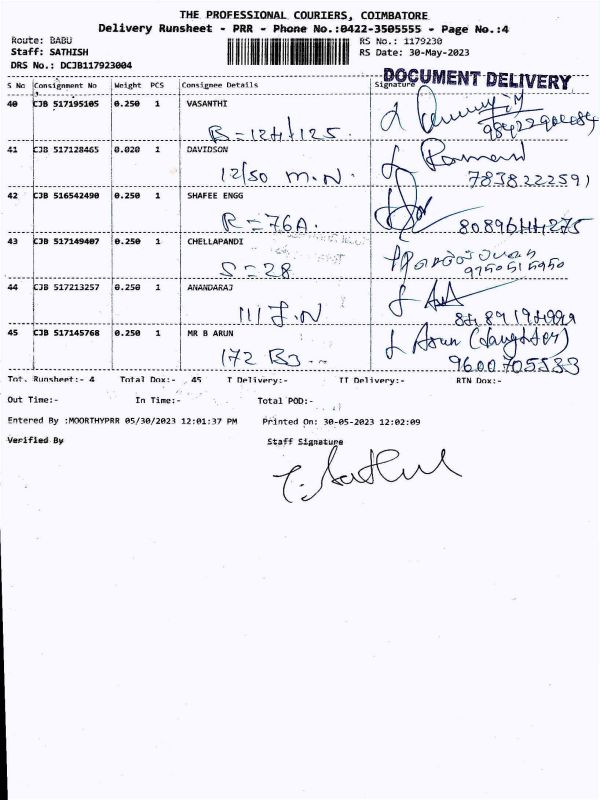 THE PROFESSIONAL COURIERS, COIMBATORE
Delivery Runsheet - PRR - Phone No.:0422-3505555 - Page No.:4
Route: BABU RS No.: 1179230
Staff: SATHISH RS Date: 30-May-2023
DRS No.: DCJB117923004
DOCUMENT DELIVERY
S No Consignment No Weight PCS Consignee Details Signature
40 CJB 517195105 0.250 1 VASANTHI
41 CJB 517128465 0.020 1 DAVIDSON
12/50 M.N. 7838222591
42 CJB 516542490 0.250 1 SHAFEE ENGG
R=76A. 8089644275
43 CJB 517149407 0.250 1 CHELLAPANDI
S=28 9750515950
44 CJB 517213257 0.250 1 ANANDARAJ
111 J.N
45 CJB 517145768 0.250 1 MR B ARUN Arun (daughter)
172 B3 9600705583
Tot. Runsheet:- 4 Total Dox:- 45 T Delivery:- TT Delivery:- RTN Dox:-
Out Time:- In Time:- Total POD:-
Entered By :MOORTHYPRR 05/30/2023 12:01:37 PM Printed On: 30-05-2023 12:02:09
Verified By Staff Signature